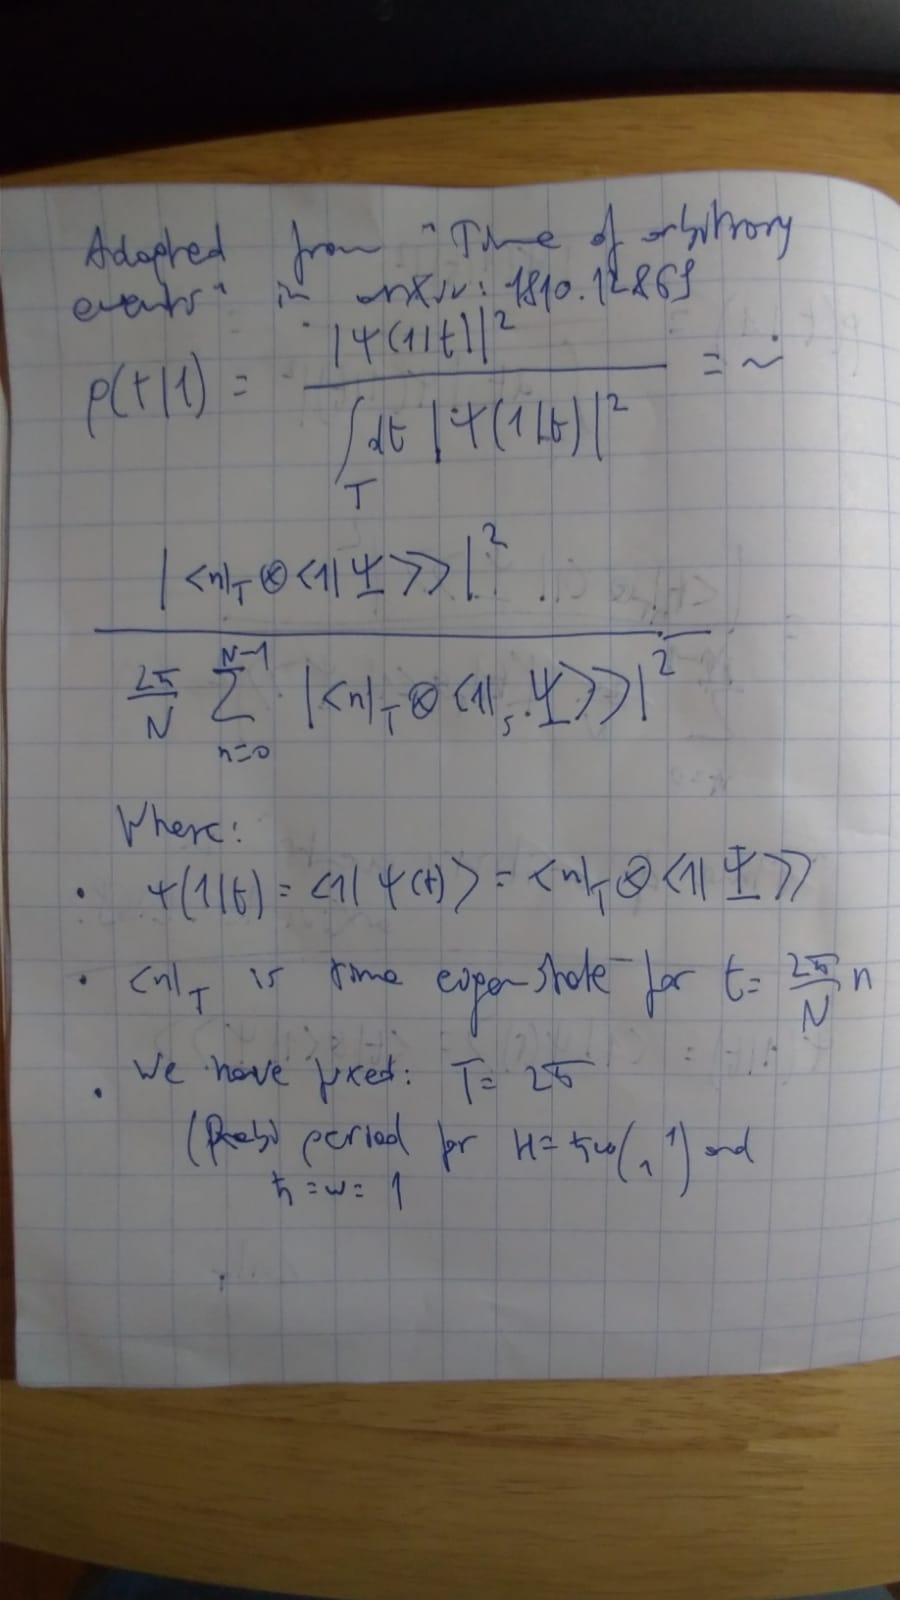 Adapted from "Time of arbitrary
events" in arXiv: 1810.12869
p(t|1) = |ψ(1|t)|² / ∫_T dt |ψ(1|t)|² = ~
|<n|_T ⊗ <1|Ψ>>|²
2π/N Σ_{n=0}^{N-1} |<n|_T ⊗ <1|_S Ψ>>|²
Where:
• ψ(1|t) = <1|ψ(t)> = <n|_T ⊗ <1|Ψ>>
• <n|_T is time eigenstate for t = 2π/N n
• We have fixed: T = 2π
period for H = ħω( 1 1 ) and
ħ = ω = 1